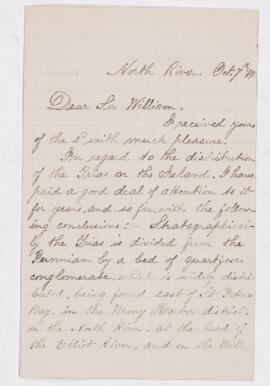 North River. Oct. 7th
Dear Sir William.
I received yours
of the 2d with much pleasure.
In regard to the distribution
of the Trias on the Island. I have
paid a good deal of attention to it
for years, and so far, with the follow-
ing conclusions:- Stratagraphical-
ly the Trias is divided from the
Permian by a bed of quartzose
conglomerate, which is widely distri-
buted, being found east of St. Peters
Bay, in the Murry Harbor district,
on the North River, at the head of
the Elliot River, and on the Mill